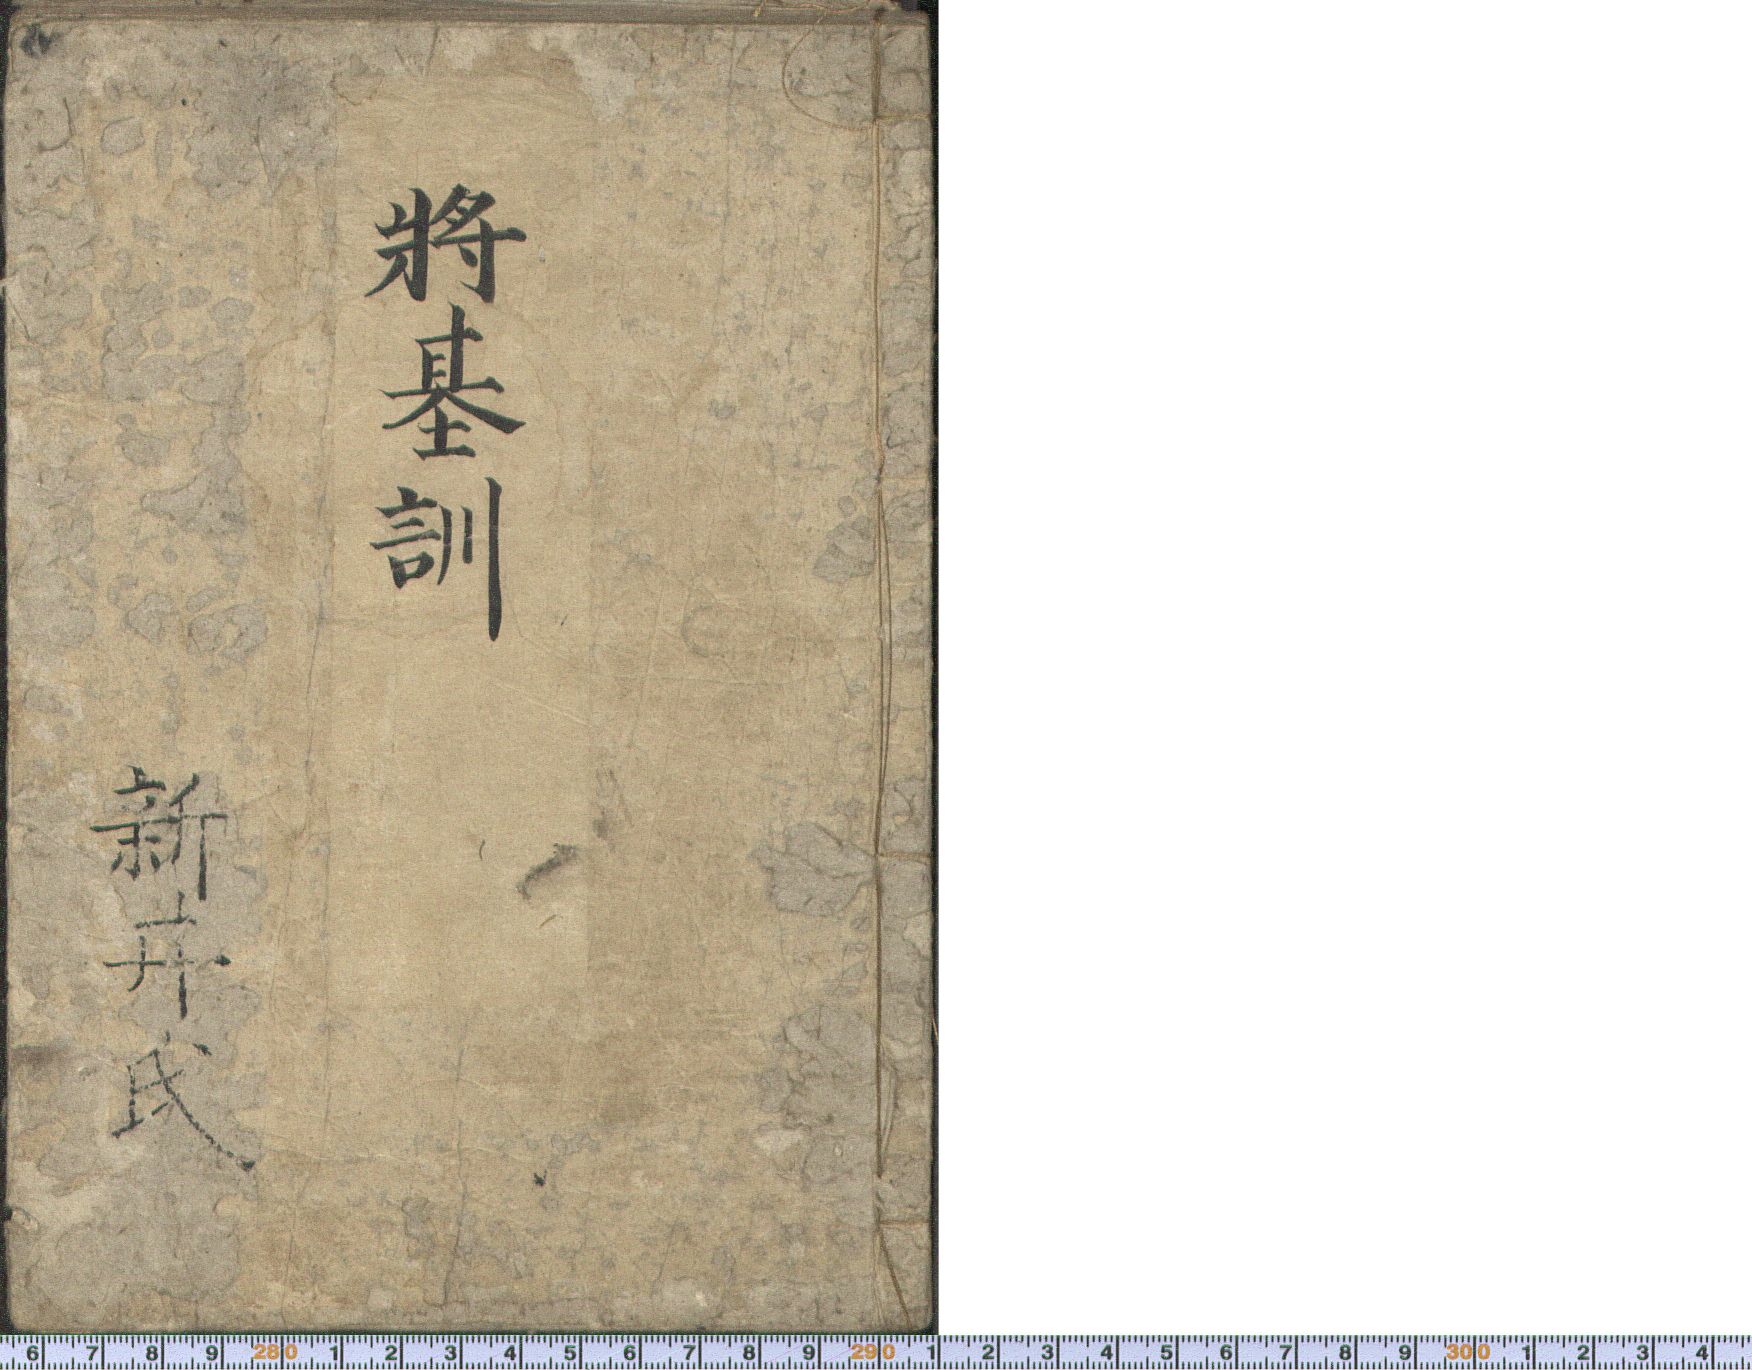 將基訓
新井氏
6 7 8 9 280 1 2 3 4 5 6 7 8 9 290 1 2 3 4 5 6 7 8 9 300 1 2 3 4